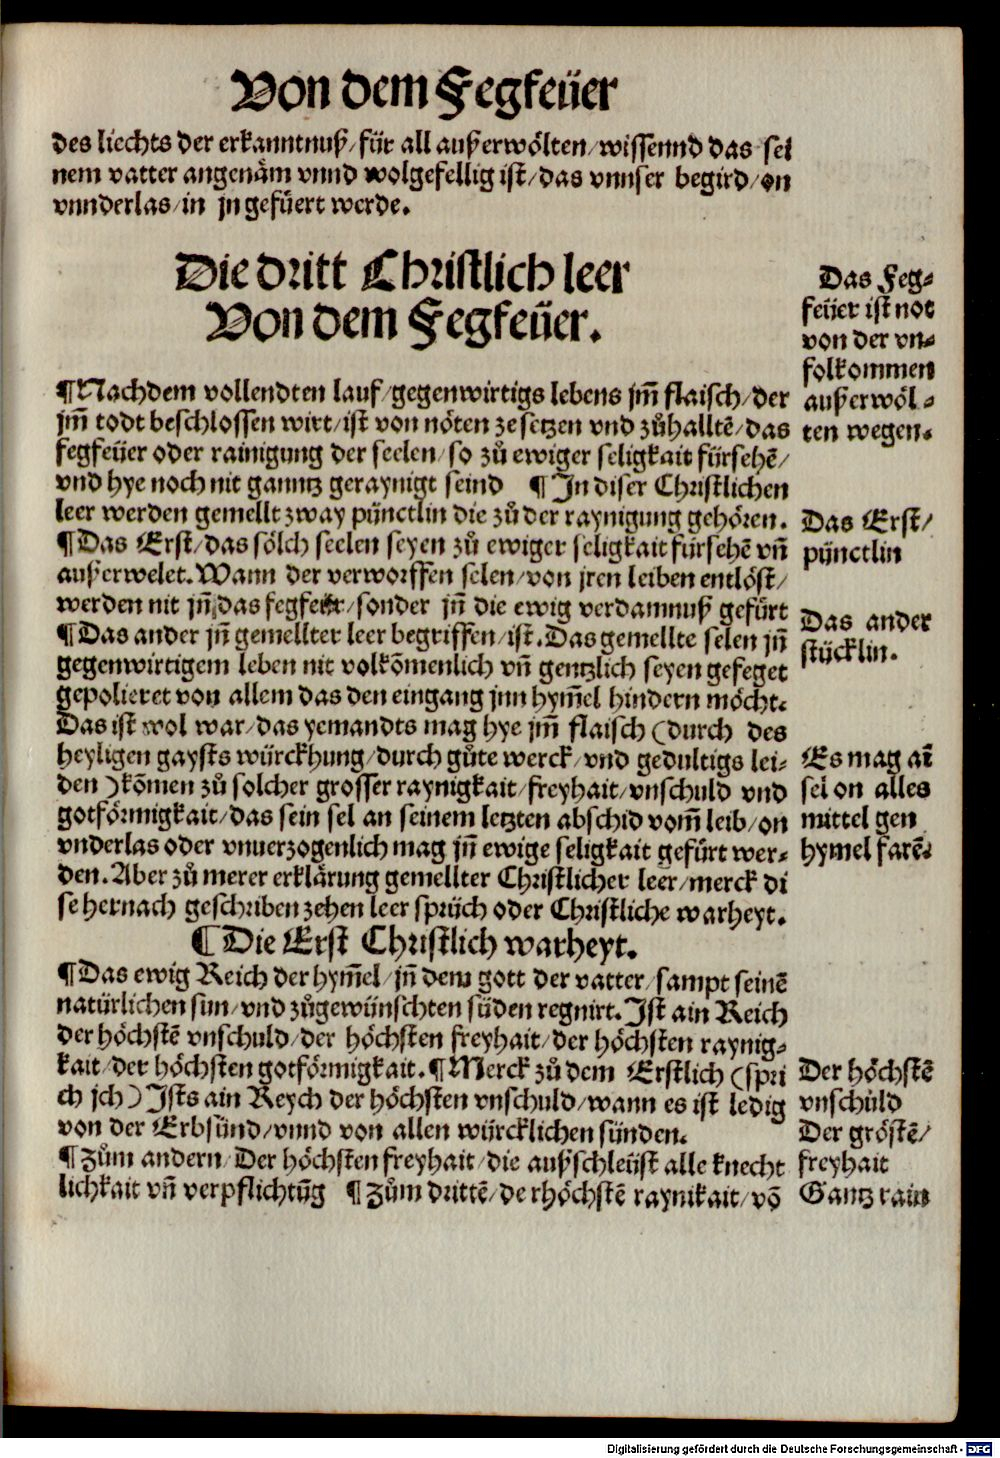 Von dem Fegfeüer
des liechts der erkanntnuß/für all außerwölten/wissennd das sei
nem vatter angenäm vnnd wolgefellig ist/das vnnser begird/on
vnnderlas/in jn gefüert werde.
Die dritt Christlich leer
Von dem Fegfeüer.
¶Nachdem vollendten lauf/gegenwirtigs lebens jm̃ flaisch/der
jm̃ todt beschlossen wirt/ist von nöten ze setzen vnd zůhalltẽ/das
fegfeüer oder rainigung der seelen/so zů ewiger seligkait fürsehẽ/
vnd hye noch nit ganntz geraynigt seind ¶In diser Christlichen
leer werden gemellt zway pünctlin die zů der raynigung gehören.
¶Das Erst/das sölch seelen seyen zů ewiger seligkait fürsehẽ vñ
außerwelet. Wann der verworffen selen/von jren leiben entlöst/
werden nit jñ das fegfeür/sonder jñ die ewig verdamnuß gefürt
¶Das ander jñ gemellter leer begriffen/ist. Das gemellte selen jñ
gegenwirtigem leben nit volkõmenlich vñ gentzlich seyen gefeget
gepolieret von allem das den eingang jnn hym̃el hindern möcht.
Das ist wol war/das yemandts mag hye jm̃ flaisch (durch des
heyligen gaysts würckhung/durch gůte werck/vnd gedultigs lei-
den) kõmen zů solcher grosser raynigkait/freyhait/vnschuld vnd
gotförmigkait/das sein sel an seinem letzten abschid vom̃ leib/on
vnderlas oder vnuerzogenlich mag jñ ewige seligkait gefürt wer-
den. Aber zů merer erklärung gemellter Christlicher leer/merck di
se hernach geschriben zehen leer sprüch oder Christliche warheyt.
¶Die Erst Christlich warheyt.
¶Das ewig Reich der hym̃el/jñ dem gott der vatter/sampt seinẽ
natürlichen sun/vnd zůgewünschten süden regnirt. Ist ain Reich
der höchstẽ vnschuld/der höchsten freyhait/der höchsten raynig-
kait/der höchsten gotförmigkait. ¶Merck zů dem Erstlich (spri
ch jch) Ists ain Reych der höchsten vnschuld/wann es ist ledig
von der Erbsünd/vnnd von allen würcklichen sünden.
¶Zům andern/Der höchsten freyhait/die außschleüst alle knecht
lichkait vñ verpflichtũg ¶Zům drittẽ/de rhöchstẽ raynikait/võ
Das Feg-
feüer ist not
von der vn-
folkommen
außerwöl-
ten wegen.
Das Erst/
pünctlin
Das ander
stücklin.
Es mag aĩ
sel on alles
mittel gen
hymel farẽ.
Der höchstẽ
vnschůld
Der gröstẽ/
freyhait
Gantz rain
Digitalisierung gefördert durch die Deutsche Forschungsgemeinschaft - DFG